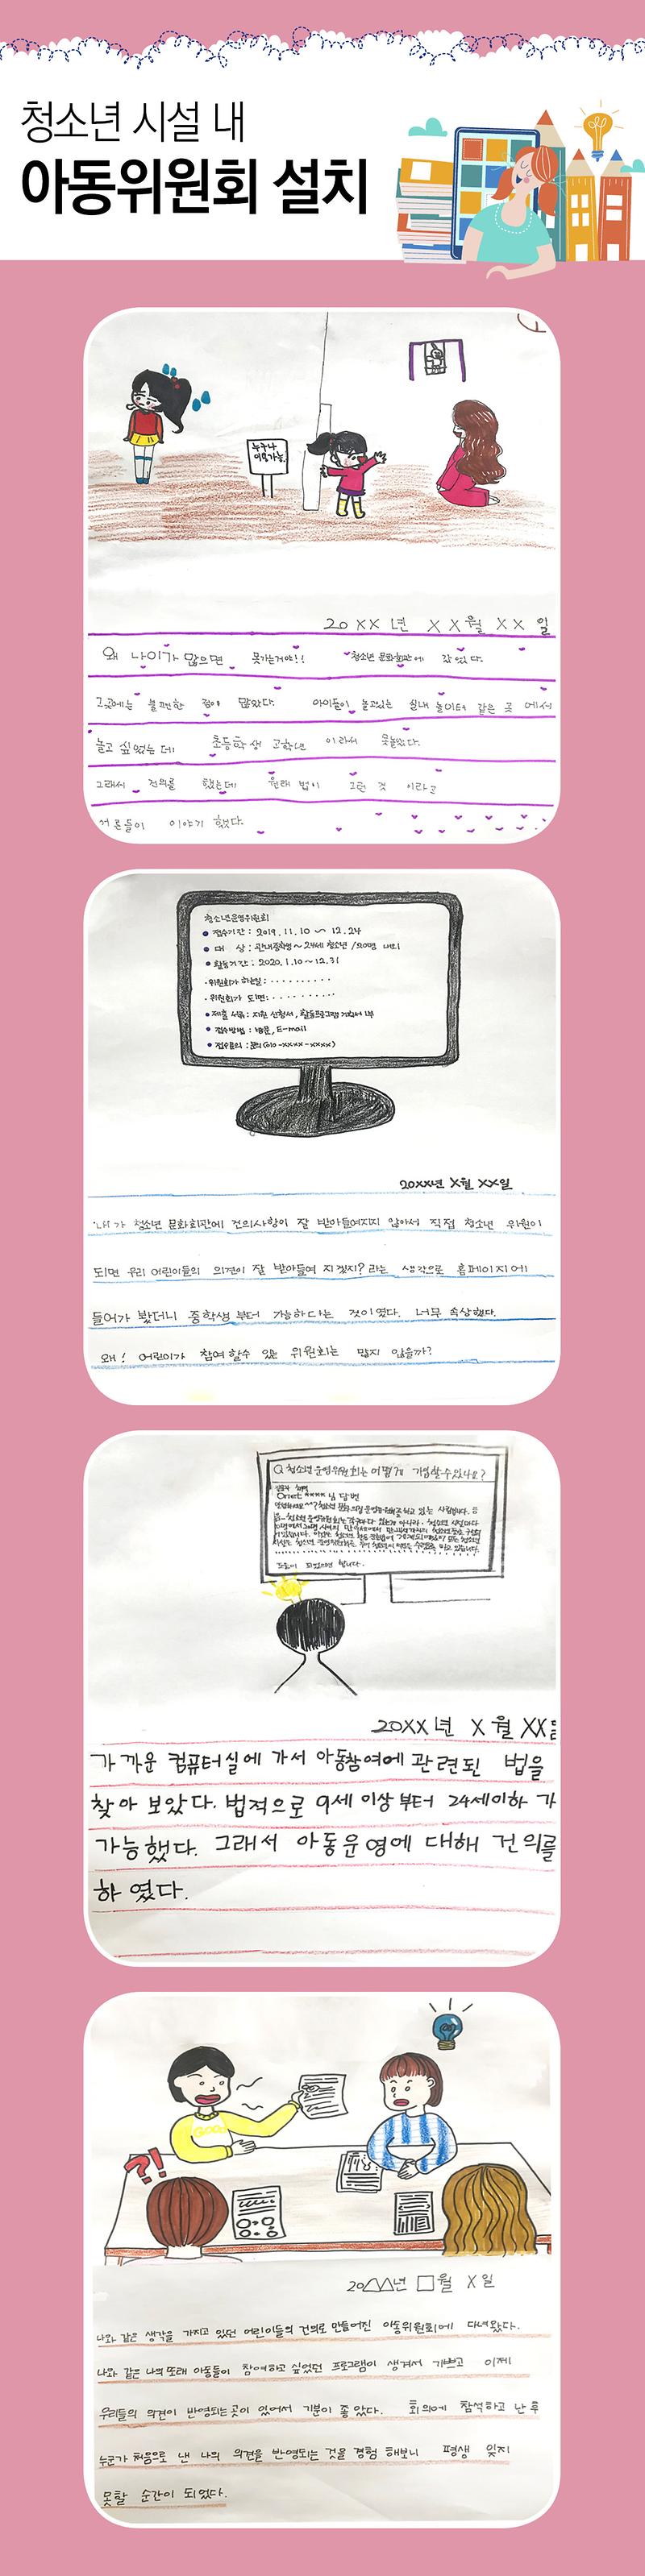 청소년 시설 내
아동위원회 설치
누구나
이용가능
20XX 년 XX월 XX 일
왜 나이가 많으면 못가는거야!! 청소년 문화회관에 갔었다.
그곳에는 불편한 점이 많았다. 아이들이 놀고있는 실내 놀이터 같은 곳 에서
놀고 싶었는데 초등학생 고학년 이라서 못놀았다.
그래서 건의를 했는데 원래 법이 그런 것 이라고
어른들이 이야기 했다.
청소년운영위원회
• 접수기간 : 2019. 11. 10 ~ 12. 24
• 대 상 : 관내중학생 ~ 24세 청소년 / 20명 내외
• 활동기간 : 2020. 1. 10 ~ 12. 31
· 위원회가 하는일 : ..........
· 위원회가 되면 : ..........
• 제출 서류 : 지원 신청서, 활동프로그램 기획서 1부
• 접수방법 : 방문, E-mail
• 접수문의 : 문의 (010-xxxx-xxxx)
20xx년 X월 XX일
내가 청소년 문화회관에 건의사항이 잘 받아들여지지 않아서 직접 청소년 위원이
되면 우리 어린이들의 의견이 잘 받아들여 지겠지? 라는 생각으로 홈페이지에
들어가 봤더니 중학생 부터 가능하다는 것이였다. 너무 속상했다.
왜! 어린이가 참여할수 있는 위원회는 많지 않을까?
Q 청소년 운영위원회는 어떻게 가입할수있나요?
Onet **** 님 답변
도움이 되었으면 합니다.
20XX년 X월 XX일
가까운 컴퓨터실에 가서 아동참여에 관련된 법을
찾아 보았다. 법적으로 9세 이상 부터 24세이하 가
가능했다. 그래서 아동운영에 대해 건의를
하였다.
GOOD
?!
20△△년 □월 X일
나와 같은 생각을 가지고 있던 어린이들의 건의로 만들어진 아동위원회에 다녀왔다.
나와 같은 나의 또래 아동들이 참여하고 싶었던 프로그램이 생겨서 기쁘고 이제
우리들의 의견이 반영되는곳이 있어서 기분이 좋았다. 회의에 참석하고 난 후
누군가 처음으로 낸 나의 의견을 반영되는 것을 경험 해보니 평생 잊지
못할 순간이 되었다.